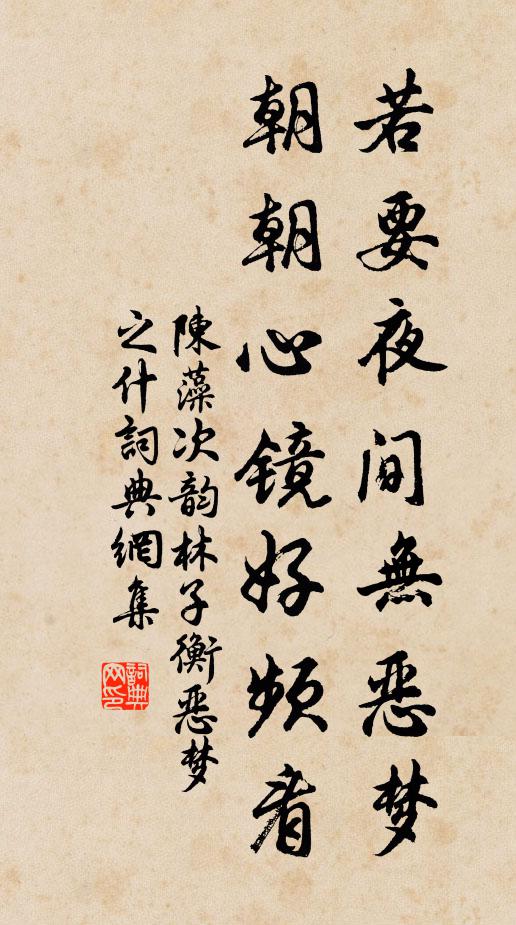 若要夜间無恶梦
朝朝心镜好频看
陳藻次韵林子衡恶梦
之什詞典網集
詞典
网印